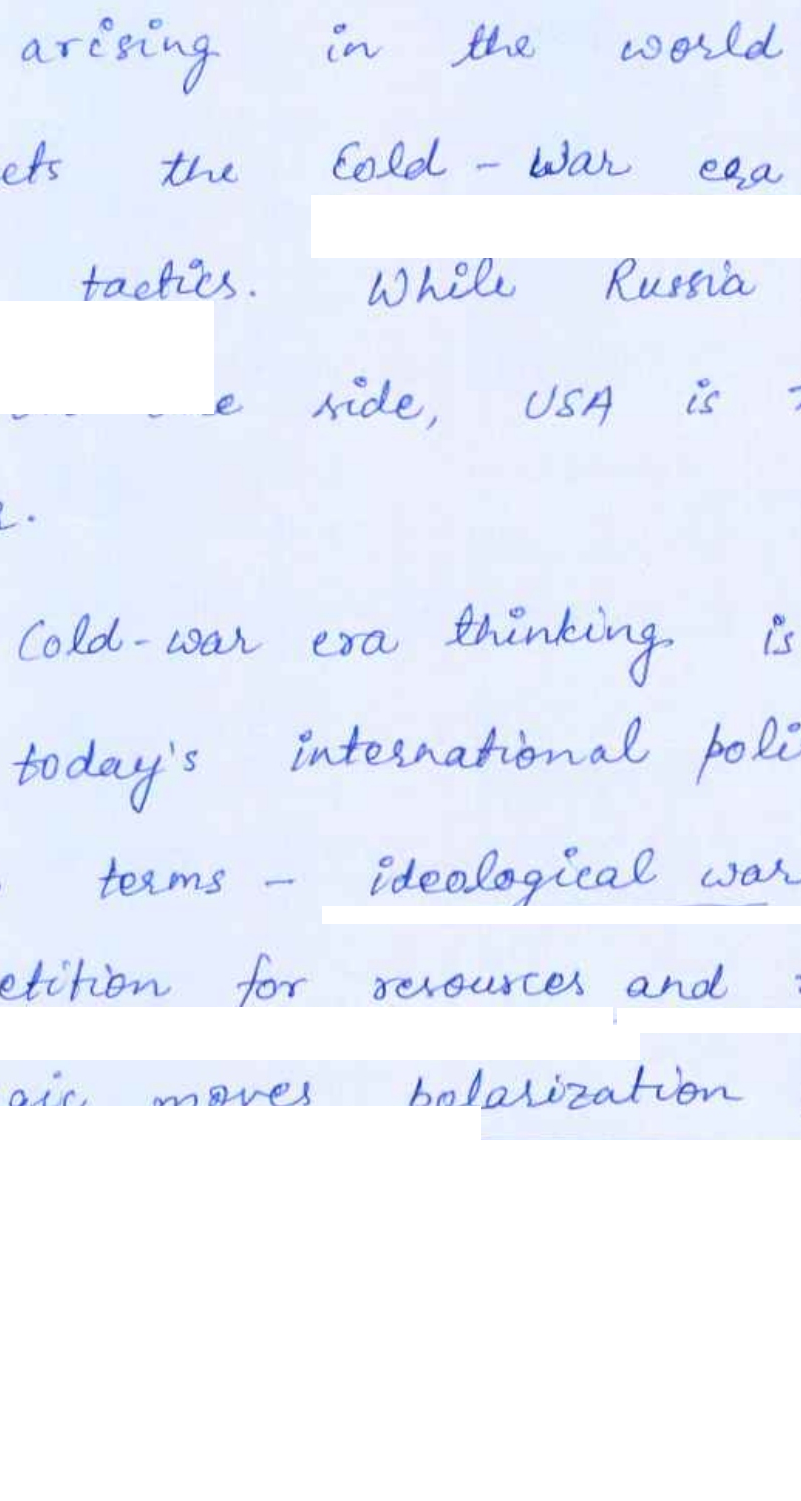 arising in the world
the Cold - War era
tactics. While Russia
side, USA is
Cold-war era thinking is
today's international
terms - ideological war
for resources and
moves polarization